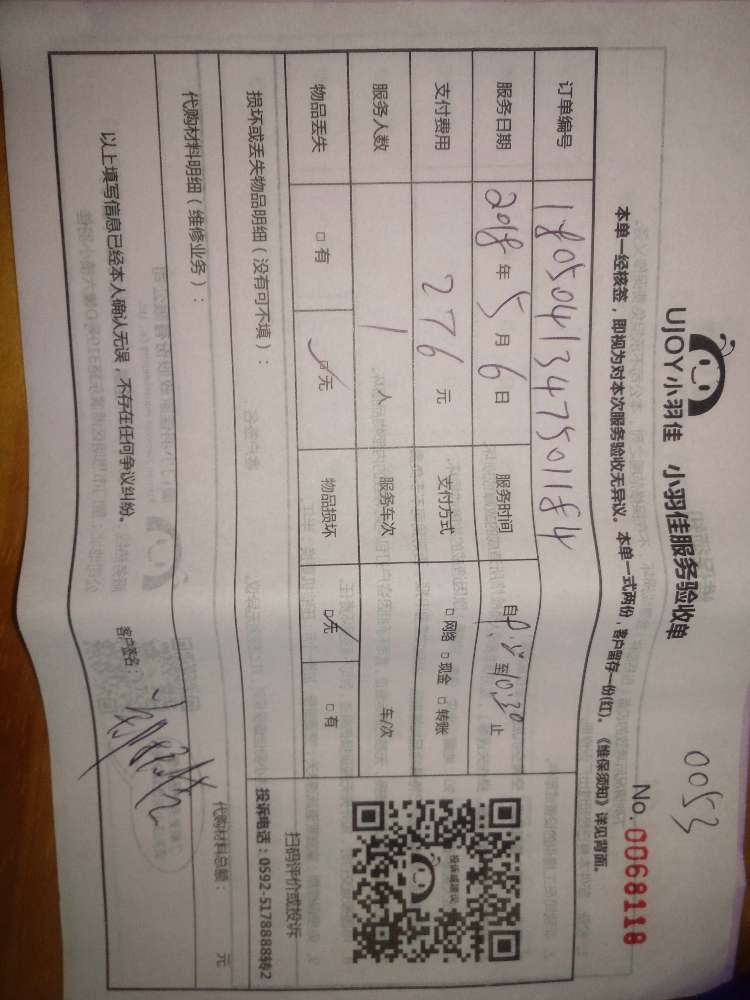 0053
UJOY小羽佳 小羽佳服务验收单
No. 0068118
本单一经核签，即视为对本次服务验收无异议。本单一式两份，客户留存一份(红)。《维保须知》详见背面。
订单编号 1805041347501184
服务日期 2018年5月6日 服务时间 自 至10:30止
支付费用 276元 支付方式 □网络 □现金 □转账
服务人数 1人 服务车次 车/次
物品丢失 □有 ☑无 物品损坏 ☑无 □有
投诉或建议
扫码评价或投诉
投诉电话：0592-5178888转2
损坏或丢失物品明细（没有可不填）：
代购材料明细（维修业务）：
代购材料总额： 元
以上填写信息已经本人确认无误，不存在任何争议纠纷。 客户签名：